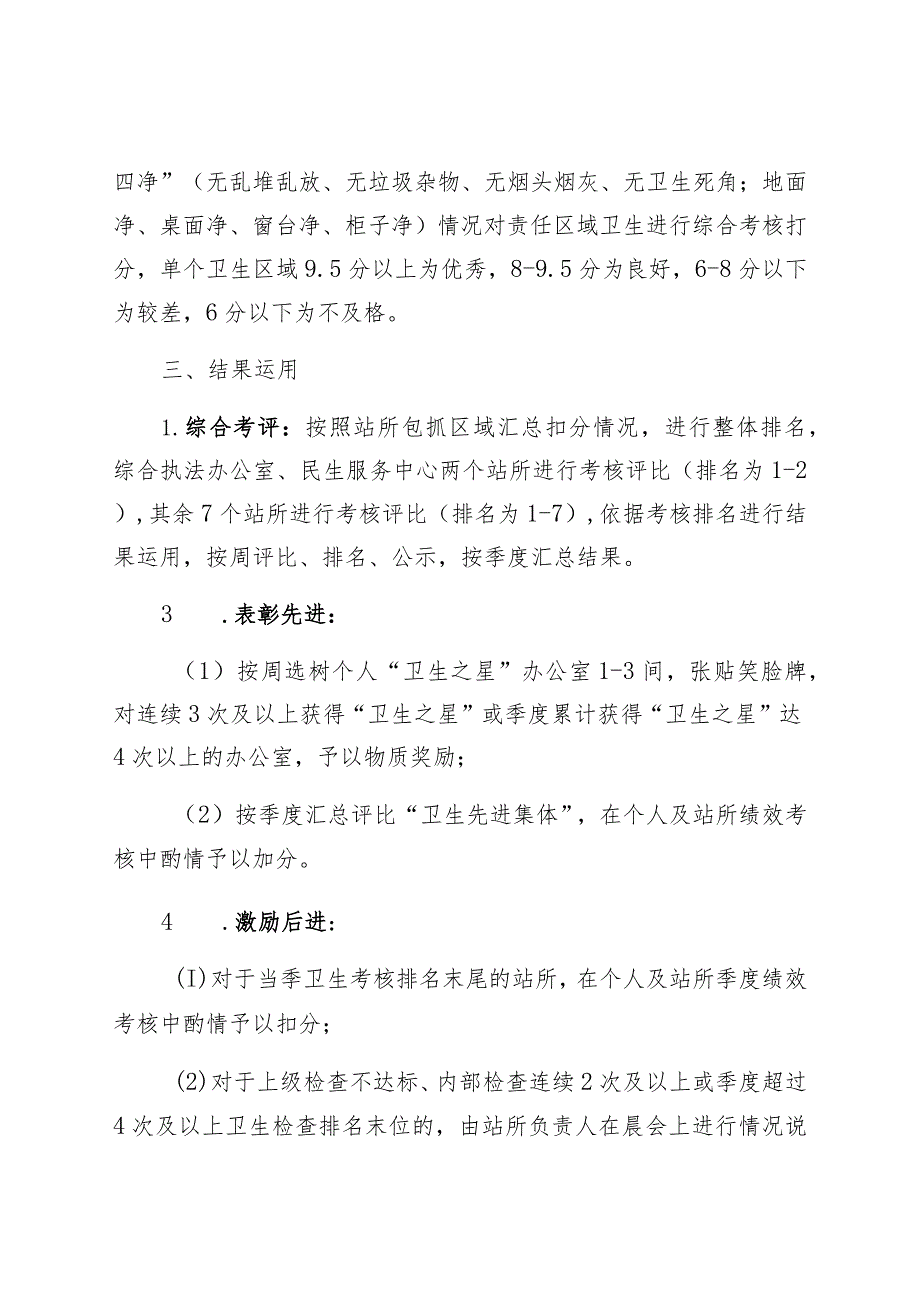 四净”（无乱堆乱放、无垃圾杂物、无烟头烟灰、无卫生死角；地面
净、桌面净、窗台净、柜子净）情况对责任区域卫生进行综合考核打
分，单个卫生区域9.5分以上为优秀，8-9.5分为良好，6-8分以下
为较差，6分以下为不及格。
三、结果运用
1.综合考评：按照站所包抓区域汇总扣分情况，进行整体排名，
综合执法办公室、民生服务中心两个站所进行考核评比（排名为1-2
）,其余7个站所进行考核评比（排名为1-7）,依据考核排名进行结
果运用，按周评比、排名、公示，按季度汇总结果。
3 .表彰先进：
（1）按周选树个人“卫生之星”办公室1-3间，张贴笑脸牌，
对连续3次及以上获得“卫生之星”或季度累计获得“卫生之星”达
4次以上的办公室，予以物质奖励；
（2）按季度汇总评比“卫生先进集体”，在个人及站所绩效考
核中酌情予以加分。
4 .激励后进：
(I)对于当季卫生考核排名末尾的站所，在个人及站所季度绩效
考核中酌情予以扣分；
(2)对于上级检查不达标、内部检查连续2次及以上或季度超过
4次及以上卫生检查排名末位的，由站所负责人在晨会上进行情况说